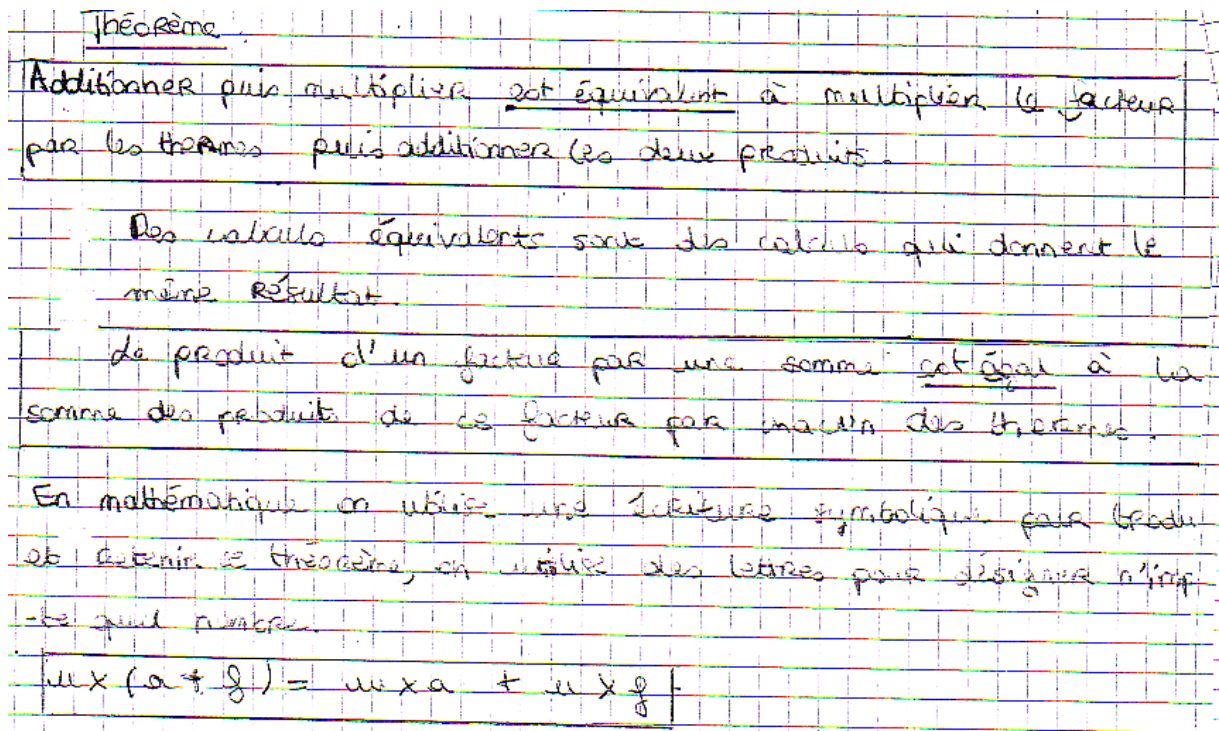 Théorème.
Additionner puis multiplier est équivalent à multiplier le facteur
par les thermes puis additionner les deux produits.
Des calculs équivalents sont des calculs qui donnent le
même résultat.
Le produit d'un facteur par une somme est égal à la
somme des produits de ce facteur par chacun des thermes.
En mathématique on utilise une écriture symbolique pour tradui
et retenir ce théorème, on utilise des lettres pour désigner n'imp
-te quel nombre.
u x (a + f) = u x a + u x f